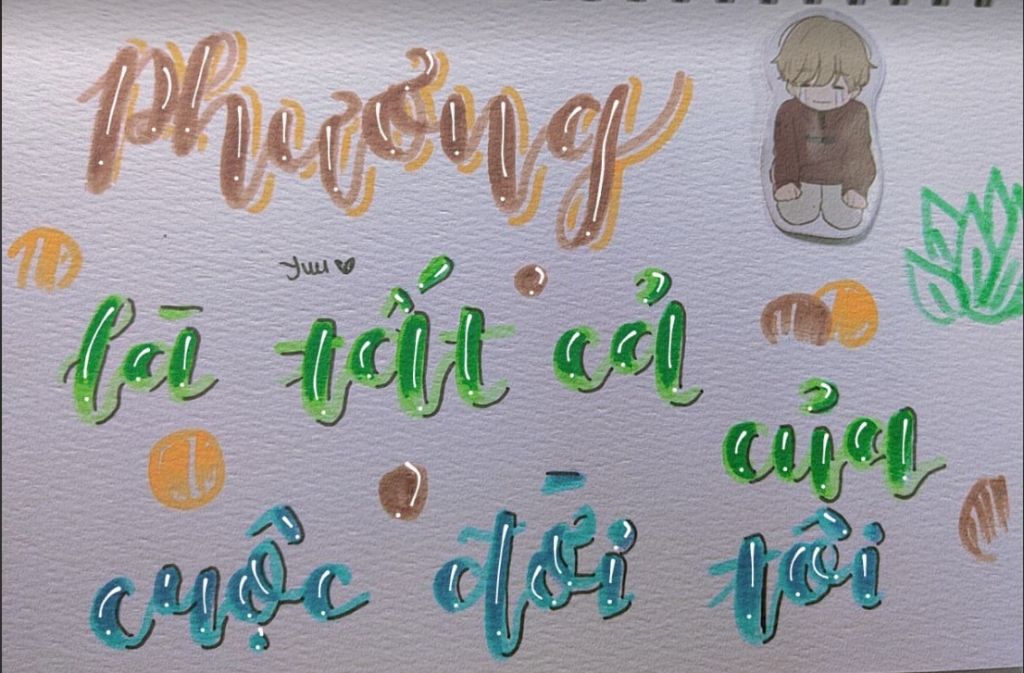 Phương
Yuu
là tất cả
của
cuộc đời tôi